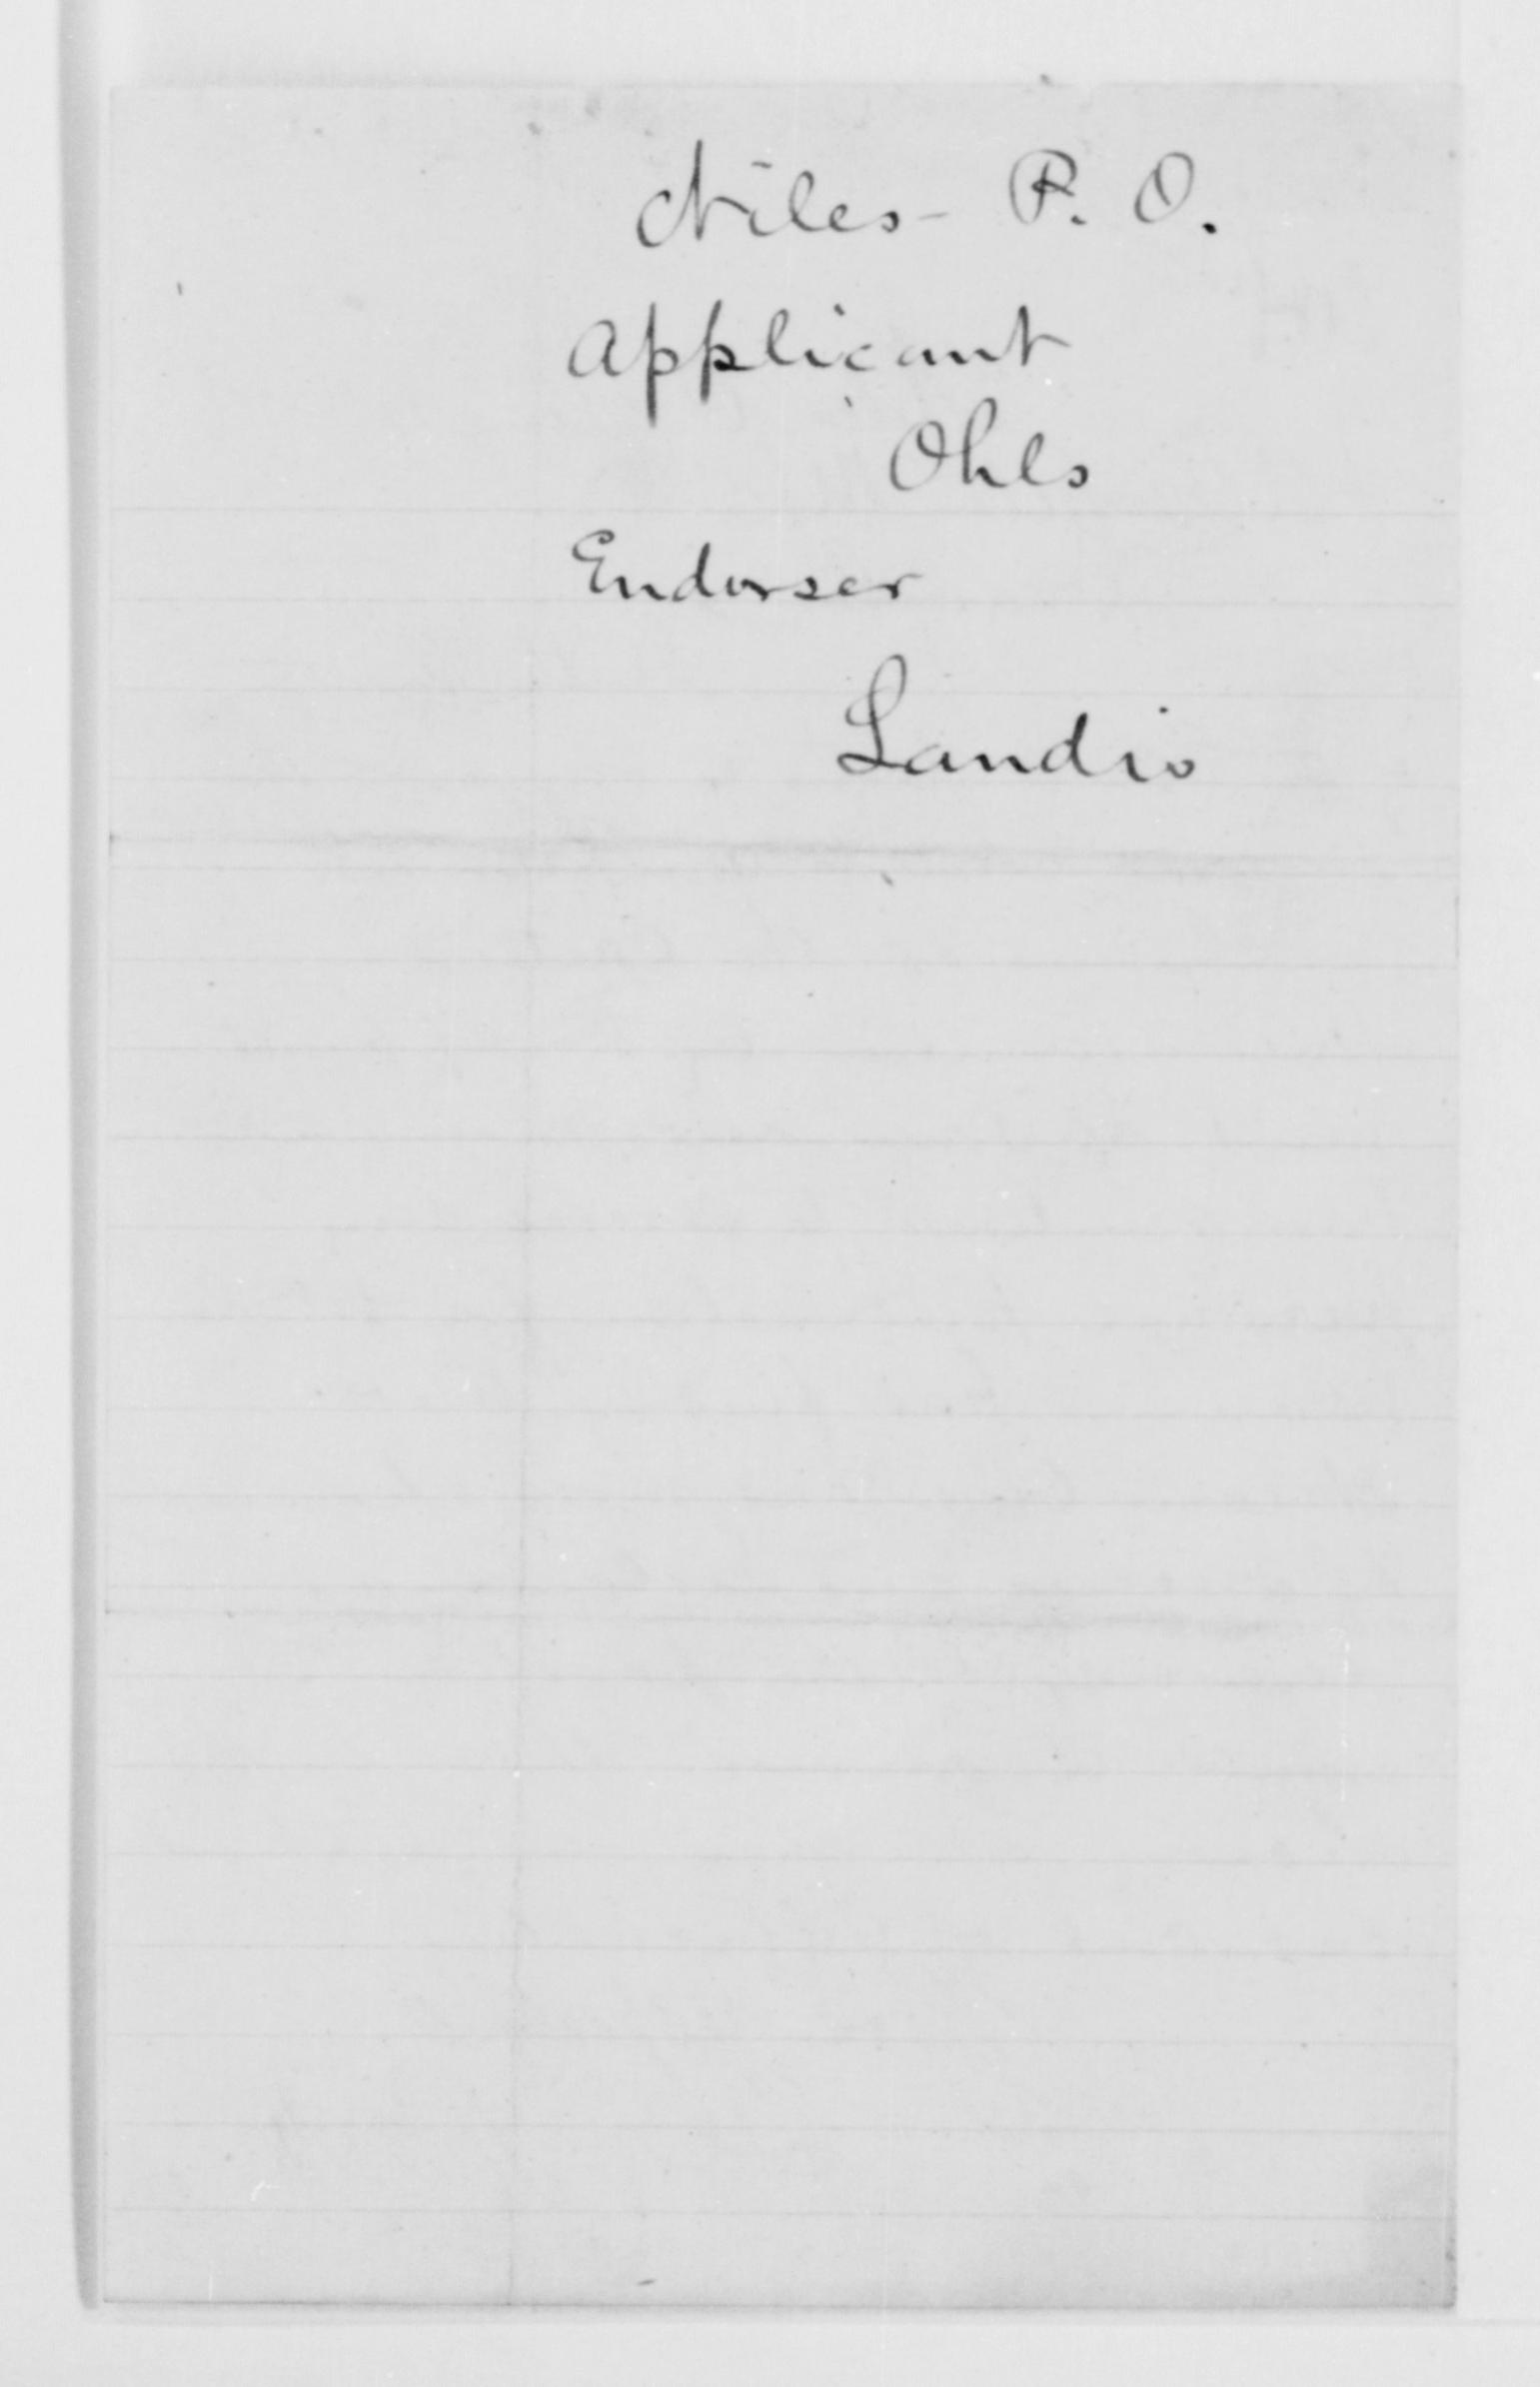 Niles - P. O.
Applicant
Ohls
Endorser
Landis